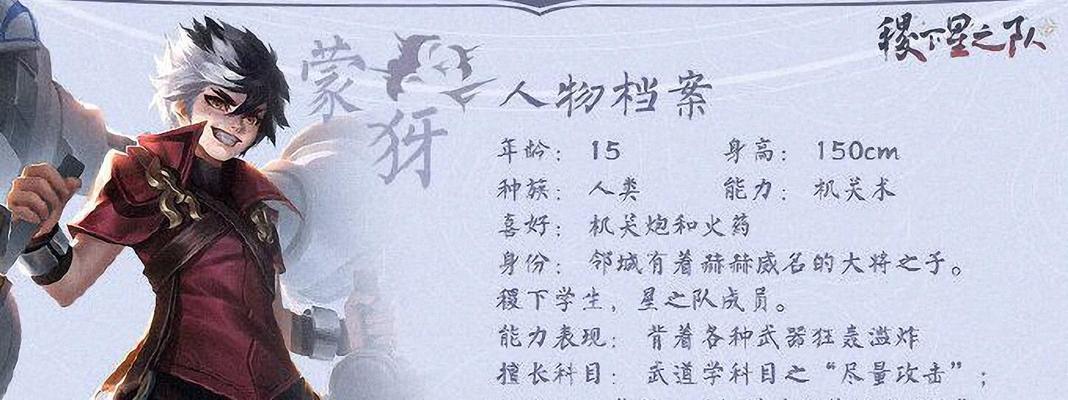 稷下星之队
蒙犽
人物档案
年龄: 15 身高: 150cm
种族: 人类 能力: 机关术
喜好: 机关炮和火药
身份: 邻城有着赫赫威名的大将之子。
稷下学生，星之队成员。
能力表现: 背着各种武器狂轰滥炸
擅长科目: 武道学科目之“尽量攻击”;